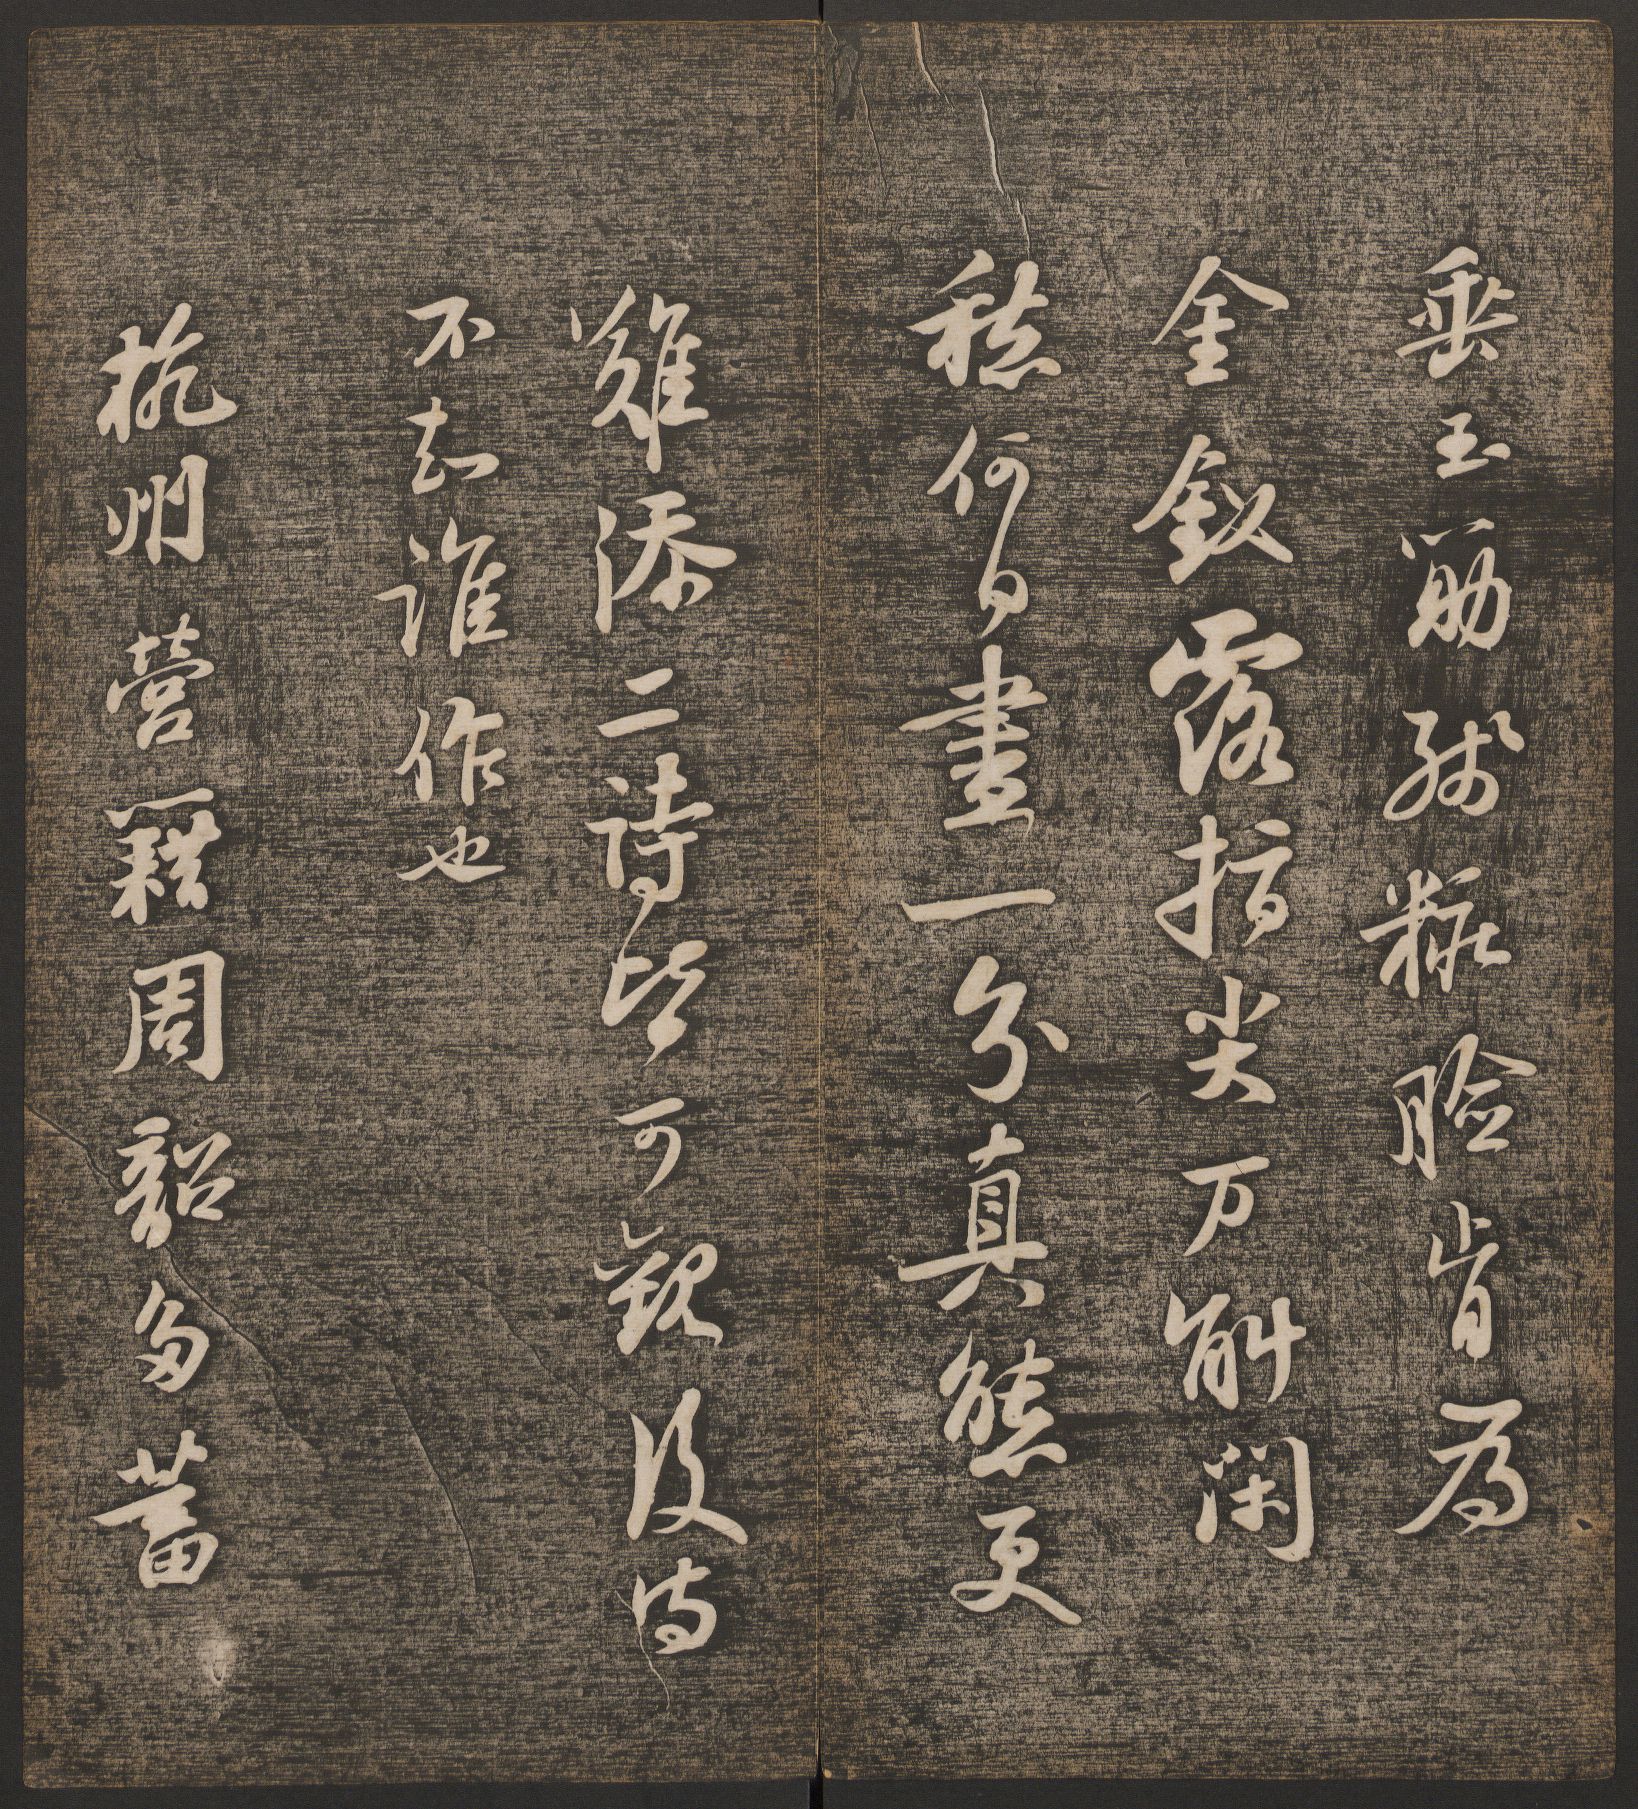 垂玉筯殘粧臉肯為
金釵露指尖万斛閑
愁何日盡一分真態更
難添二詩皆可觀後詩
不知誰作也
杭州營籍周韶多蓄